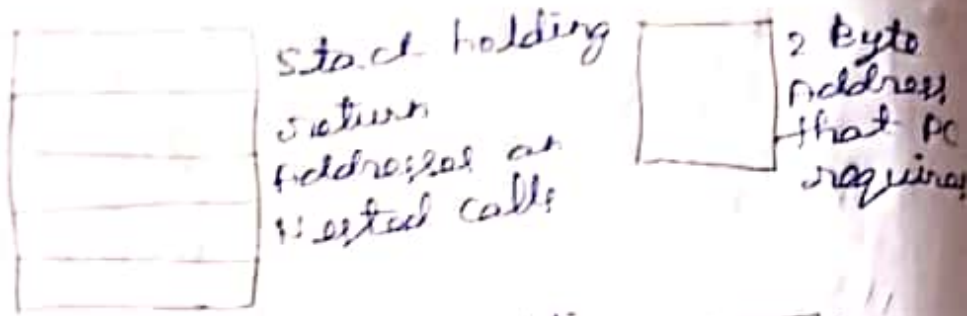 Stack holding
return
Addresses on
Nested calls
2 Byte
Address
that PC
requires